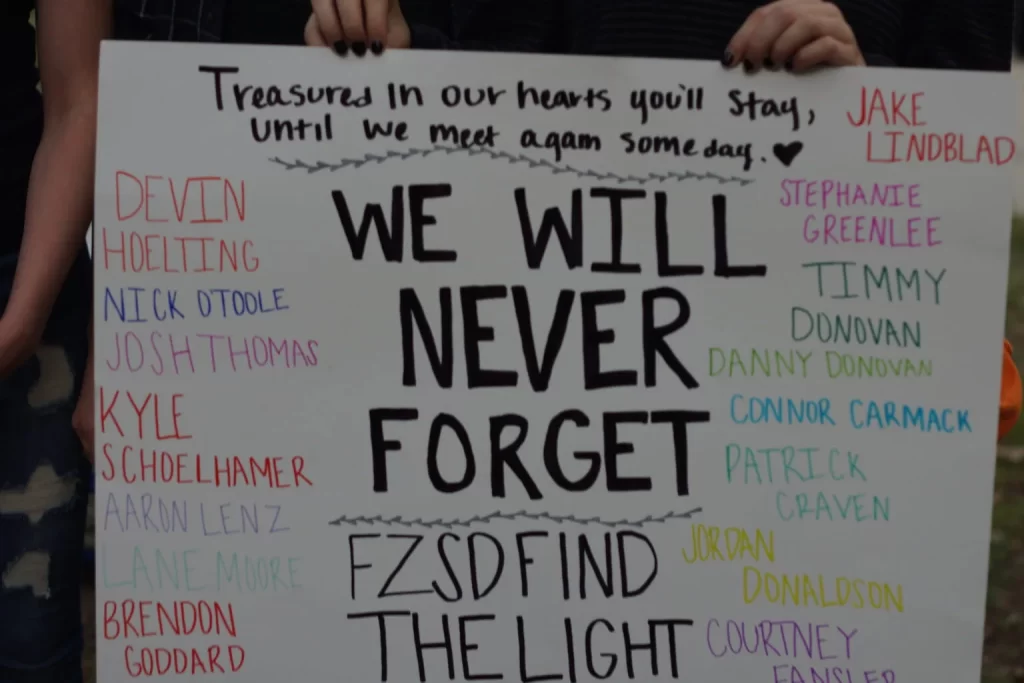 Treasured in our hearts you'll stay,
until we meet again someday. ♥
WE WILL
NEVER
FORGET
FZSD FIND
THE LIGHT
DEVIN
HOELTING
NICK OTOOLE
JOSH THOMAS
KYLE
SCHOELHAMER
AARON LENZ
LANE MOORE
BRENDON
GODDARD
JAKE
LINDBLAD
STEPHANIE
GREENLEE
TIMMY
DONOVAN
DANNY DONOVAN
CONNOR CARMACK
PATRICK
CRAVEN
JORDAN
DONALDSON
COURTNEY
FANSLER